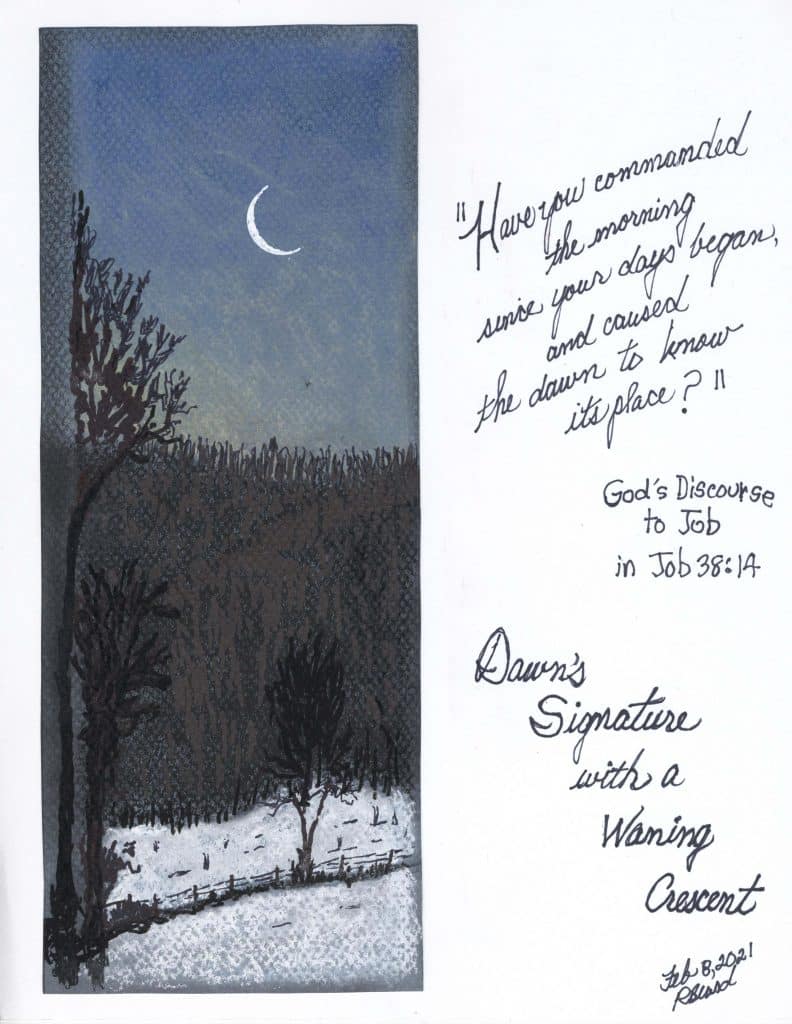 "Have you commanded
the morning
since your days began,
and caused
the dawn to know
its place?"
God's Discourse
to Job
in Job 38:14
Dawn's
Signature
with a
Waning
Crescent
Feb 8, 2021